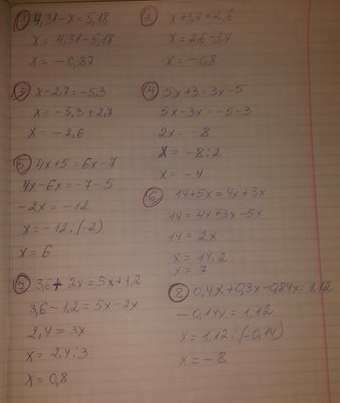 ① 4,31-x=5,18
x = 4,31-5,18
x = -0,87
x+3,4=2,6
x=2,6-3,4
x=-0,8
③ x-2,7=-5,3
x=-5,3+2,7
x=-2,6
④ 5x+3=3x-5
5x-3x=-5-3
2x = 8
x = -8:2
x = -4
⑤ 4x+5=6x-7
4x-6x=-7-5
-2x=-12
x=-12:(-2)
x=6
⑥ 14+5x=4x+3x
14=4x+3x-5x
14=2x
x=14:2
x=7
3,6+2x=5x+1,2
3,6-1,2=5x-2x
2,4=3x
x=2,4:3
x=0,8
⑧ 0,4x+0,3x-0,84x=1,12
-0,14x=1,12
x=1,12:(-0,14)
x=-8